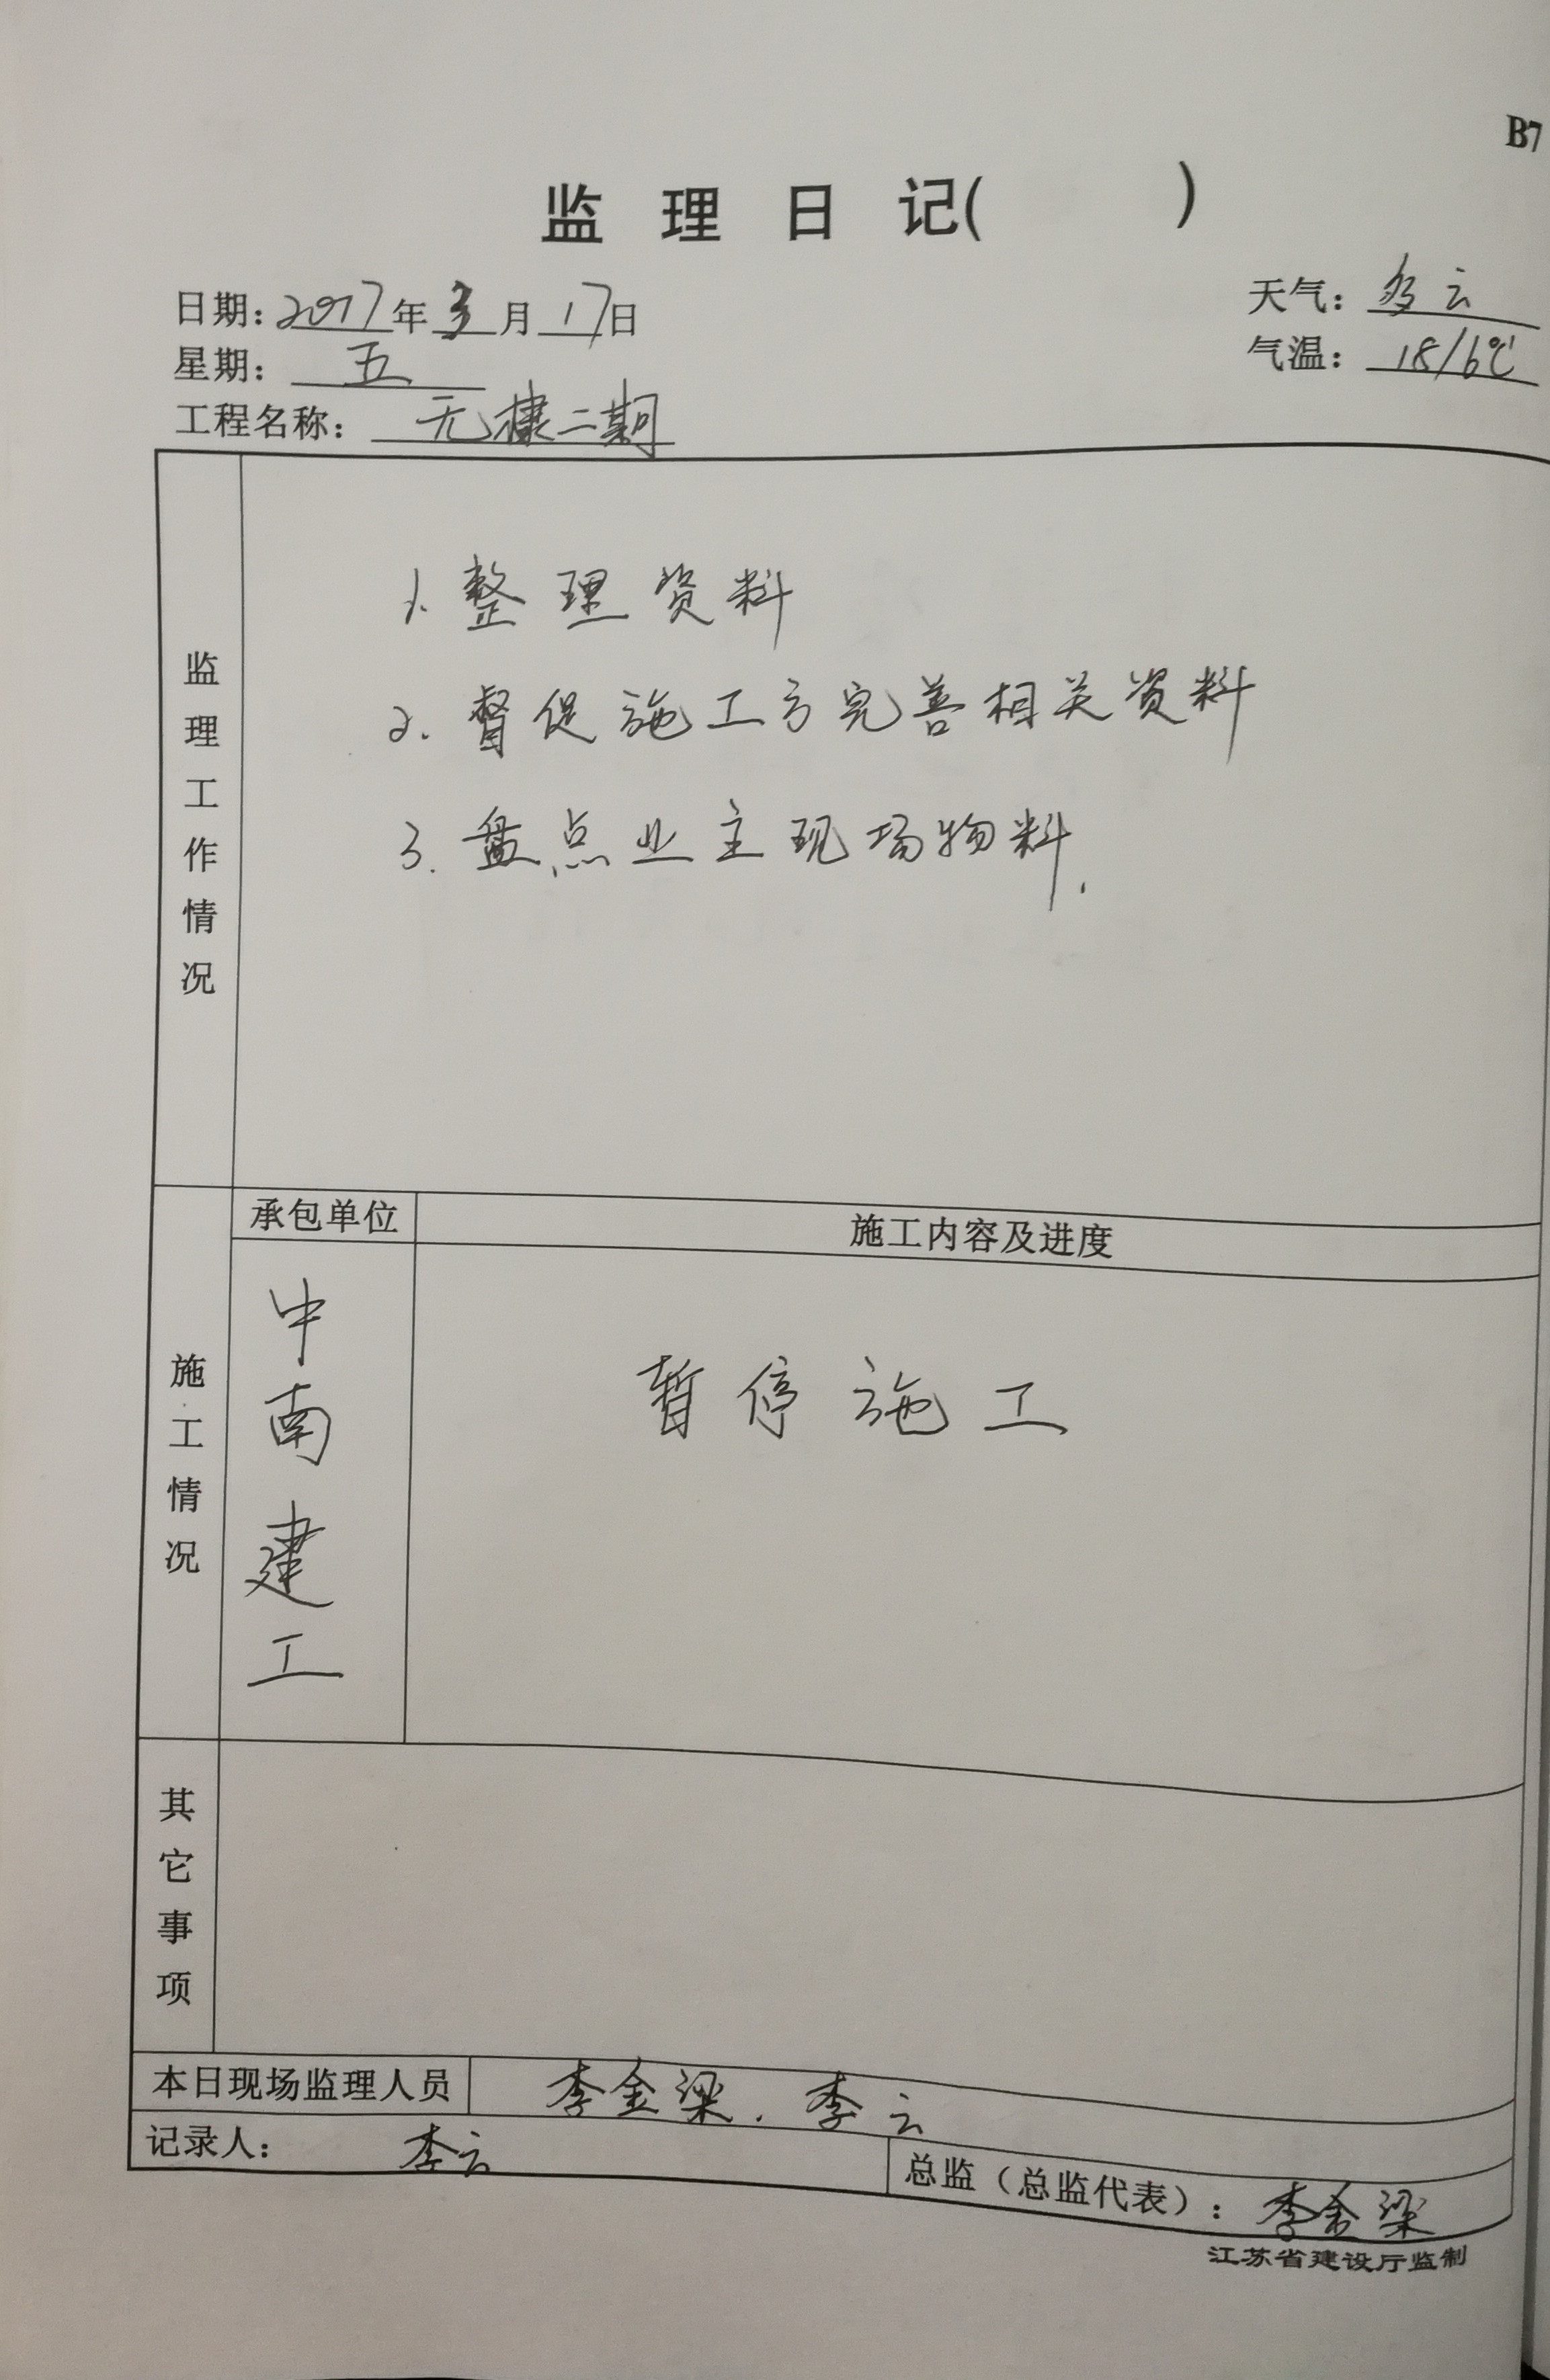 B7
监理日记( )
日期:2017年3月17日
天气:多云
星期:五
气温:18/6℃
工程名称:无棣二期
监理工作情况
1.整理资料
2.督促施工方完善相关资料
3.盘点业主现场物料.
施工情况
承包单位
施工内容及进度
中南建工
暂停施工
其它事项
本日现场监理人员
李金梁.李云
记录人:李云
总监(总监代表):李金梁
江苏省建设厅监制